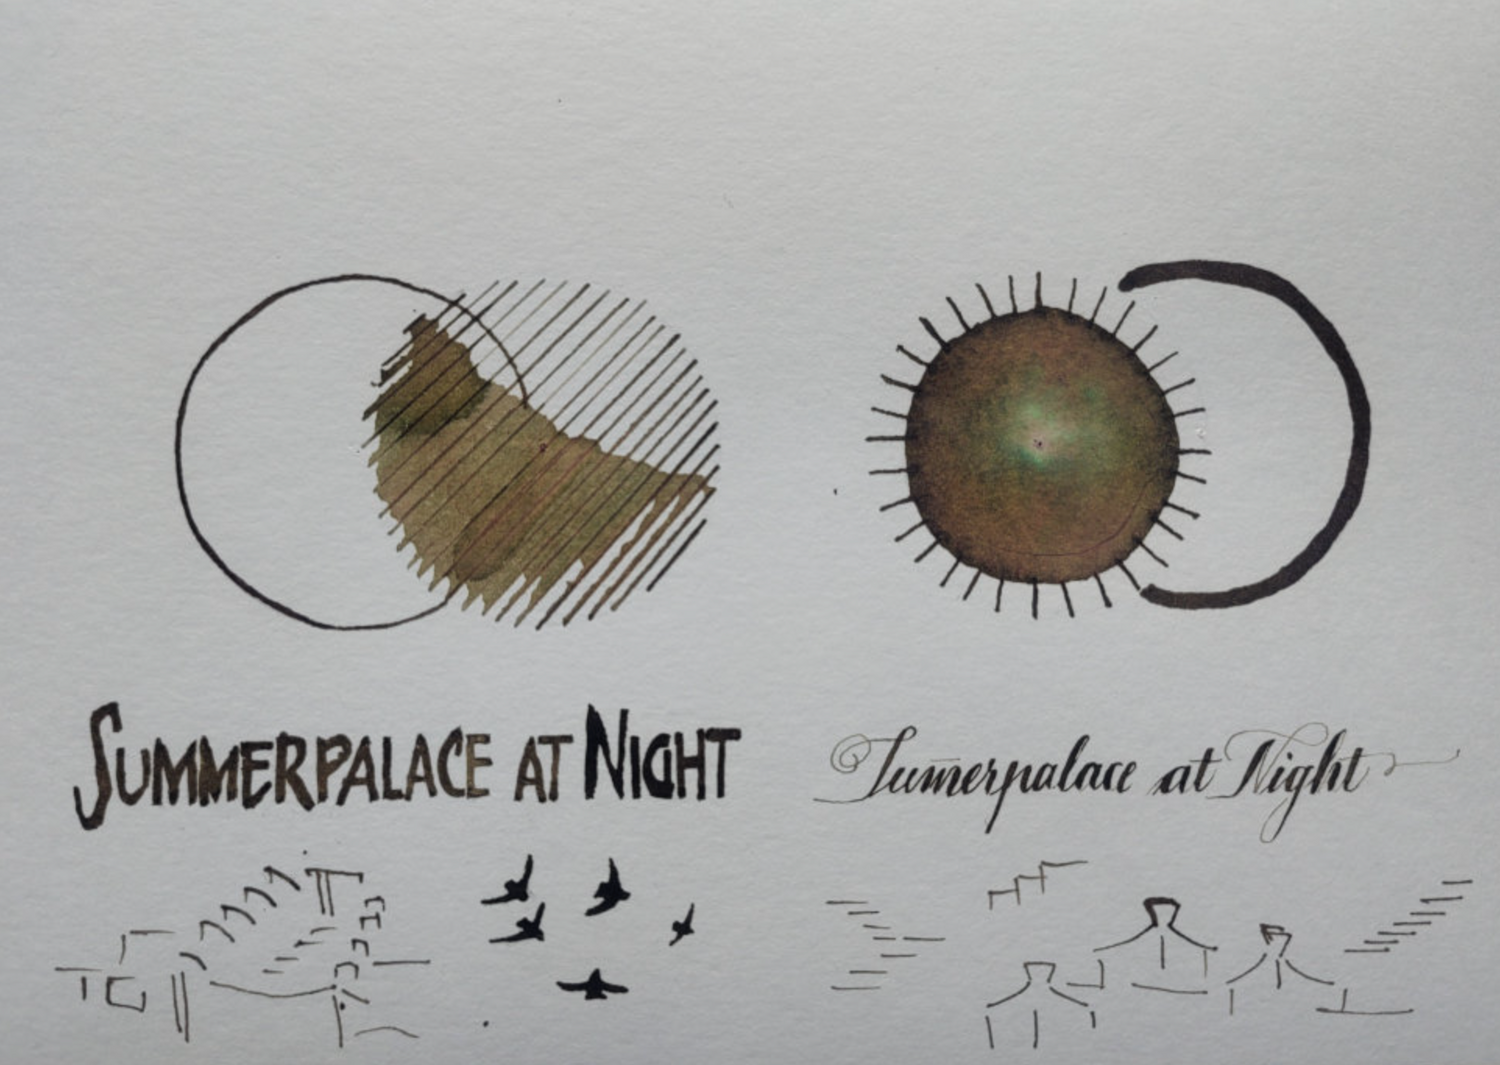 SUMMERPALACE AT NIGHT
Sum̄erpalace at Night